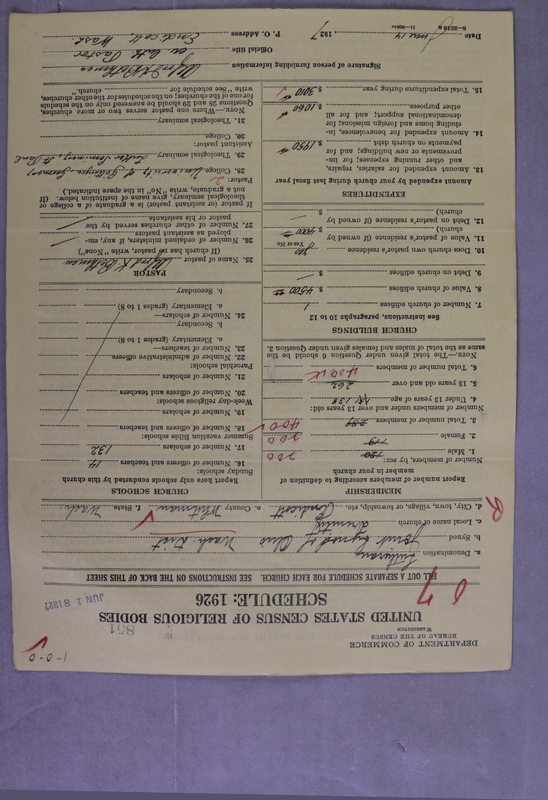 1-0-0
DEPARTMENT OF COMMERCE
BUREAU OF THE CENSUS
WASHINGTON
851
UNITED STATES CENSUS OF RELIGIOUS BODIES
SCHEDULE: 1926
JUN 18 1927
FILL OUT A SEPARATE SCHEDULE FOR EACH CHURCH. SEE INSTRUCTIONS ON THE BACK OF THIS SHEET
a. Denomination Lutheran
b. Synod Joint Synod of Ohio Wash. Dist
c. Local name of church Trinity
d. City, town, village, or township, etc. Endicott e. County Whitman f. State Wash.
MEMBERSHIP
Report number of members according to definition of
member in your church
Number of members, by sex:
1. Male 200
2. Female 200
3. Total number of members 400
Number of members under and over 13 years old:
4. Under 13 years of age 138
5. 13 years old and over 262
6. Total number of members 400
NOTE.—The total given under Question 6 should be the
same as the total of males and females given under Question 3.
CHURCH BUILDINGS
See instructions, paragraphs 10 to 12
7. Number of church edifices 1
8. Value of church edifices $ 4500
9. Debt on church edifices $
10. Does church own pastor's residence yes
Yes or No
11. Value of pastor's residence (if owned by
church) $ 4000
12. Debt on pastor's residence (if owned by
church) $
EXPENDITURES
Amount expended by your church during last fiscal year
13. Amount expended for salaries, repairs,
and other running expenses; for im-
provements or new buildings; and for
payments on church debt $ 1950
14. Amount expended for benevolences, in-
cluding home and foreign missions; for
denominational support; and for all
other purposes $ 1060
15. Total expenditures during year $ 3010
CHURCH SCHOOLS
Report here only schools conducted by this church
Sunday schools:
16. Number of officers and teachers 14
17. Number of scholars 132
Summer vacation Bible schools:
18. Number of officers and teachers
19. Number of scholars
Week-day religious schools:
20. Number of officers and teachers
21. Number of scholars
Parochial schools:
22. Number of administrative officers
23. Number of teachers—
a. Elementary (grades 1 to 8)
b. Secondary
24. Number of scholars—
a. Elementary (grades 1 to 8)
b. Secondary
PASTOR
25. Name of pastor
(If church has no pastor, write "None")
26. Number of ordained ministers, if any, em-
ployed as assistant pastors
27. Number of other churches served by the
pastor or his assistants
If pastor (or assistant pastor) is a graduate of a college or
theological seminary, give name of institution below. (If
not a graduate, write "No" in the space indicated.)
Pastor:
28. College University of
29. Theological seminary Luther Seminary, St Paul
Assistant pastor:
30. College
31. Theological seminary
NOTE.—Where one pastor serves two or more churches,
Questions 28 and 29 should be answered only on the schedule
for one of the churches; on the schedules for the other churches,
write "See schedule for church."
Signature of person furnishing information
Official title Ev. Luth Pastor
Date June 14 1927 P. O. Address Endicott Wash.
8—5319a